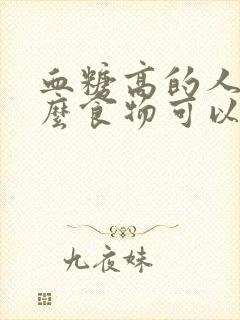 血糖高的人
麼食物可以
九夜妹